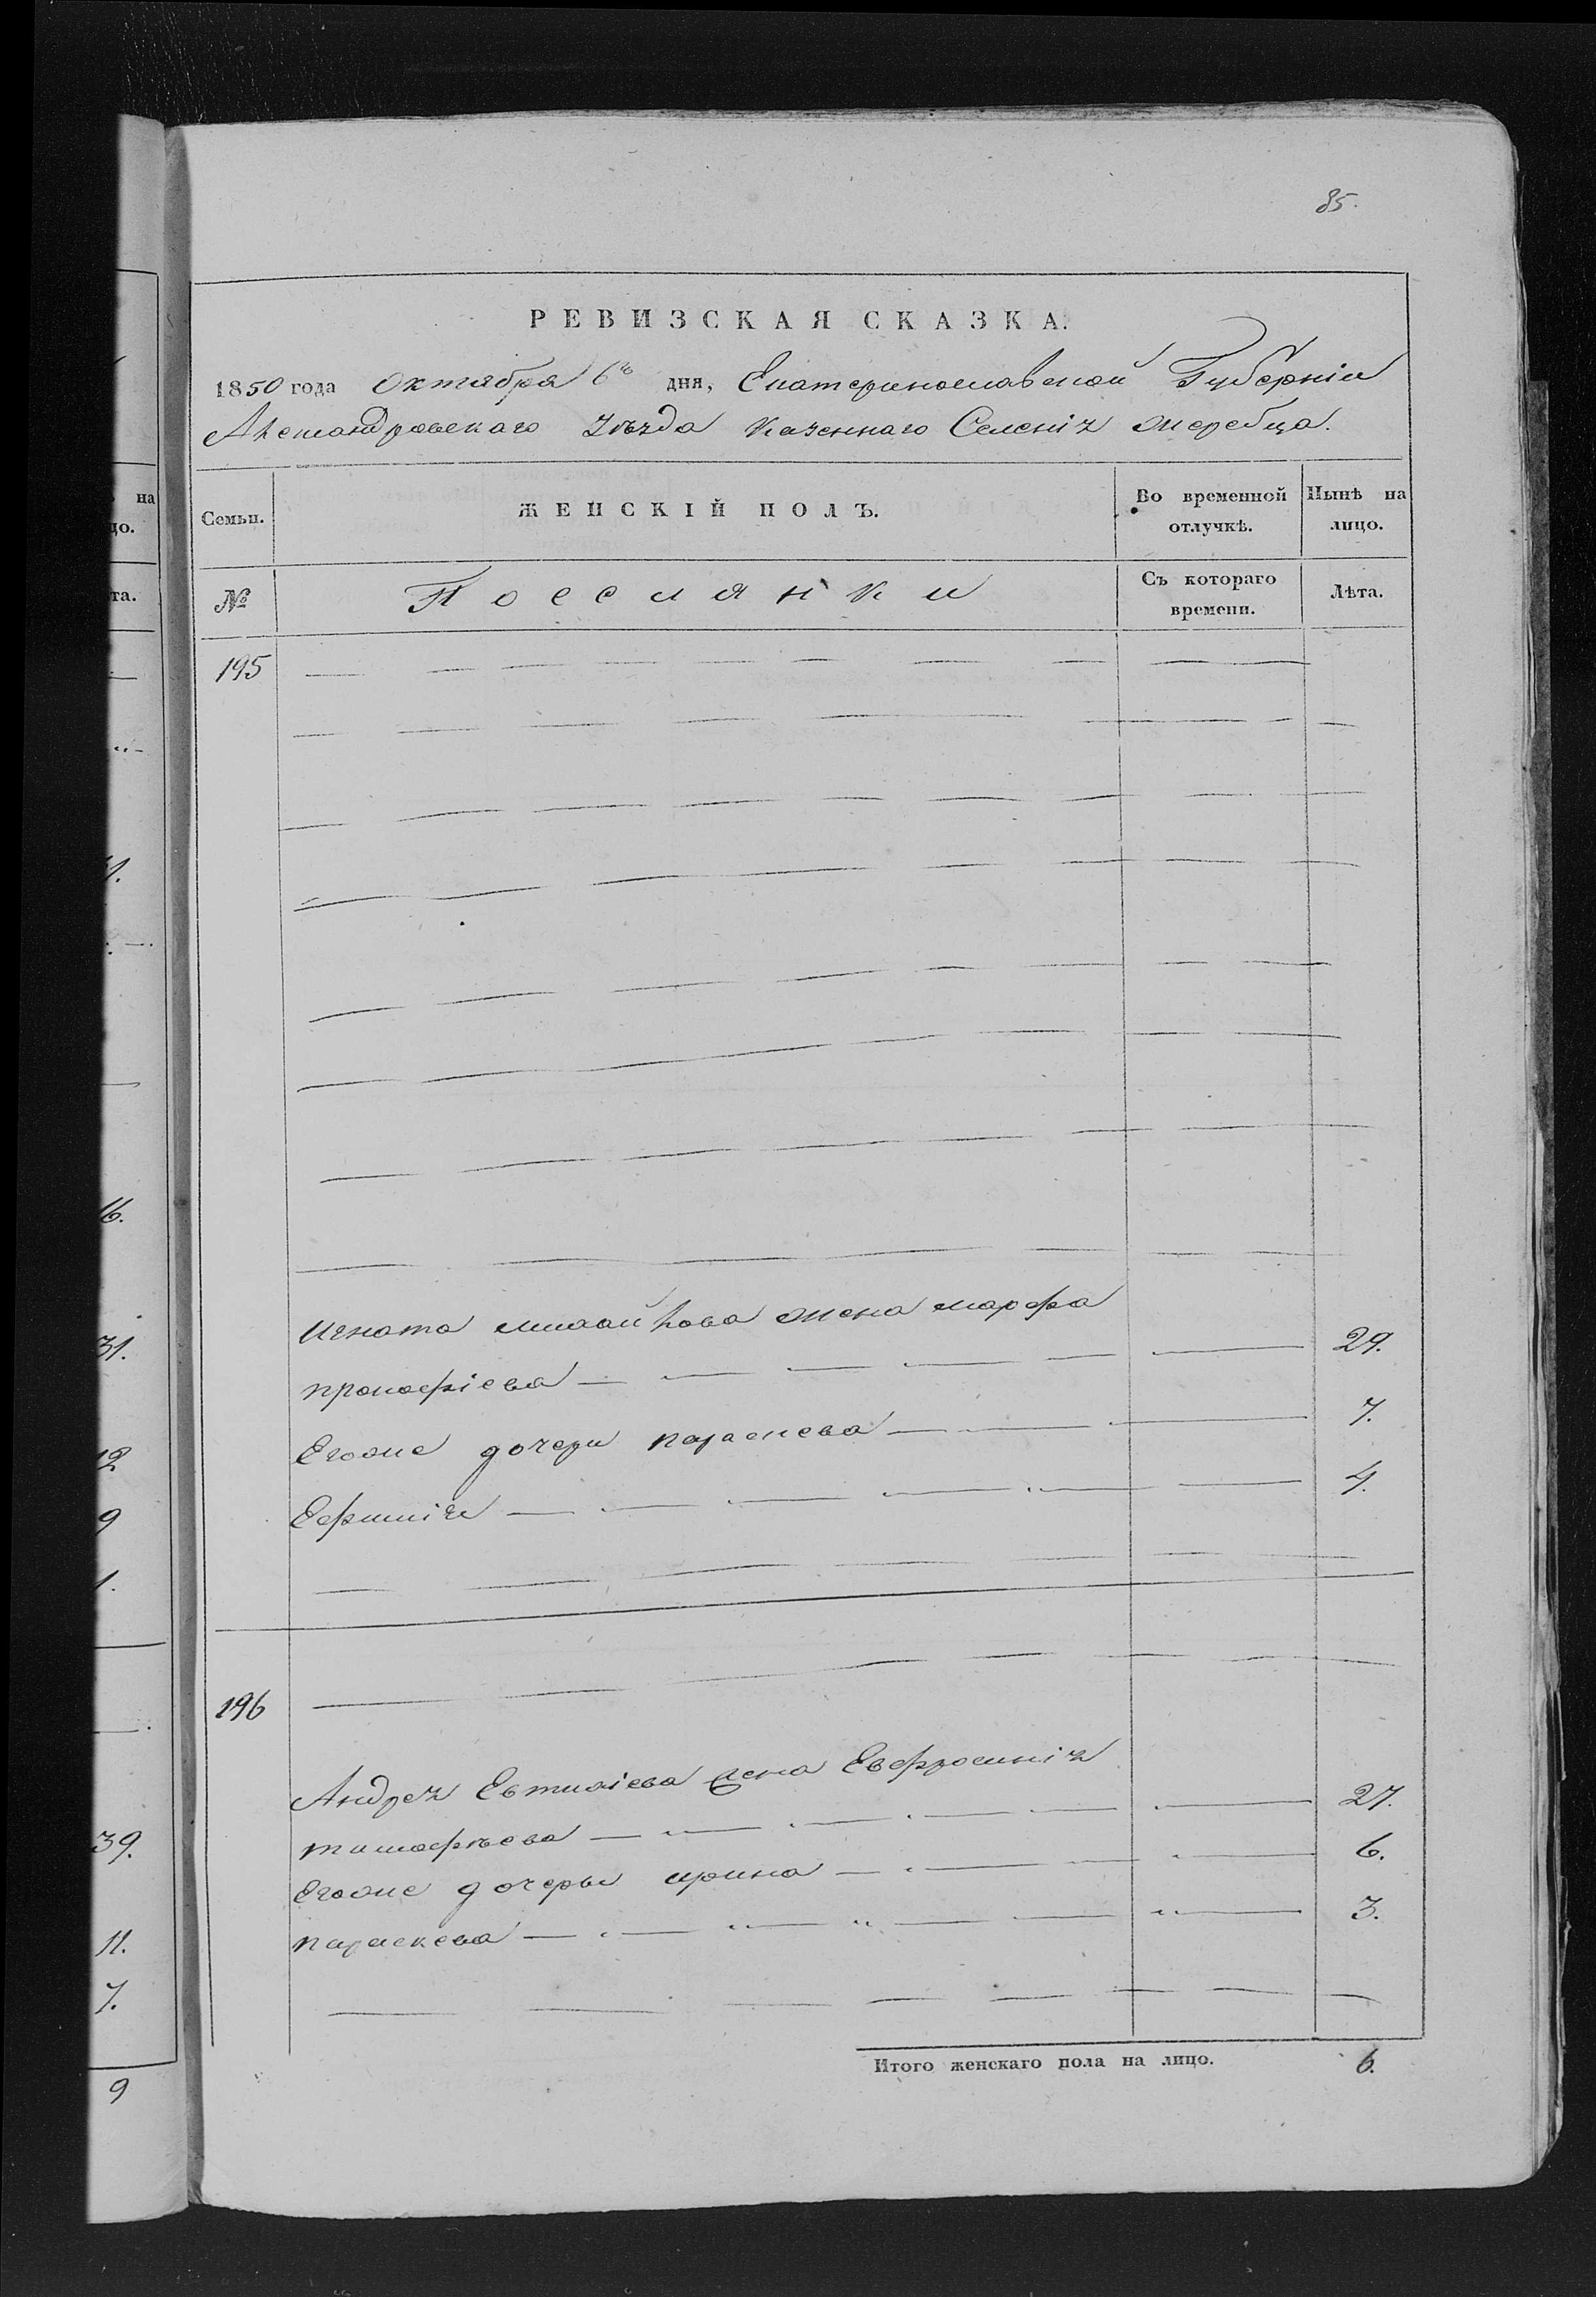 85.
РЕВИЗСКАЯ СКАЗКА.
1850 года Октября 6го дня, Екатеринославской Губерніи
Александровскаго Уѣзда Казеннаго Селенія Жеребца.
Семьи.
ЖЕНСКІЙ ПОЛЪ.
Во временной отлучкѣ.
Нынѣ на лицо.
№
Поселянки
Съ котораго времени.
Лѣта.
195
Игната жена марфа
прокофіева 29.
Егоже дочери параскева 7.
Ефимія 4.
196
Андрея Евтихіева жена Евфросинія
тимофѣева 27.
Егоже дочеры ирина 6.
параскева 3.
Итого женскаго пола на лицо. 6.
на
цо.
та.
1.
16.
31.
12
9
1.
39.
11.
7.
9